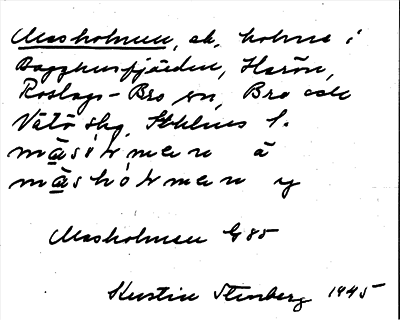 Masholmen, ek. holme i
Bagghusfjärden, Harön,
Roslags-Bro sn, Bro och
Vätö skg, Sthlms l.
masi̇̀ɫmen a
masho̊ɫmen y
Masholmen G85
Kerstin Stenberg 1945